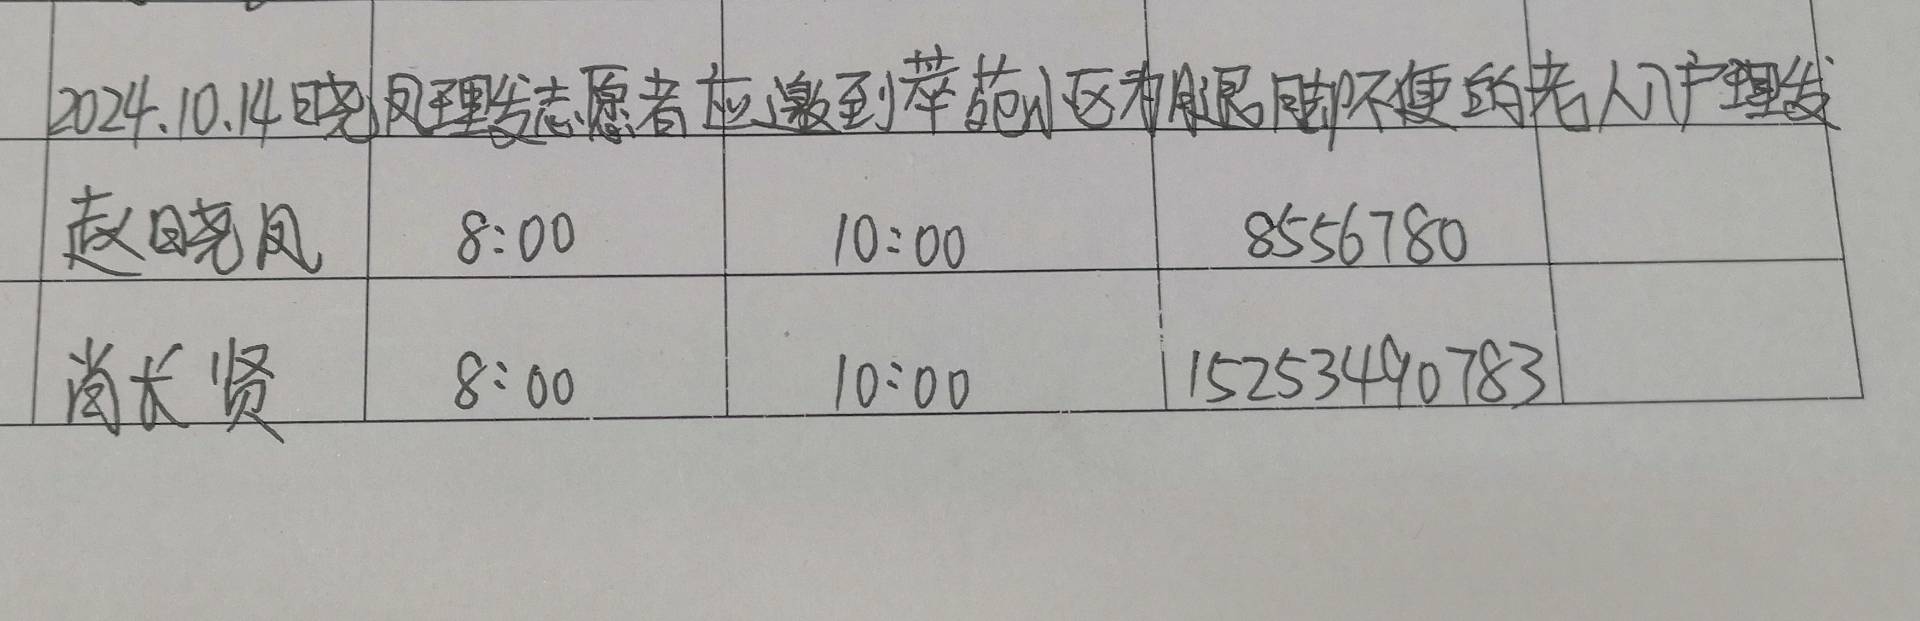 2024.10.14晓凤理发志愿者应邀到萃苑小区为腿脚不便的老人入户理发
赵晓凤 8:00 10:00 8556780
尚长贤 8:00 10:00 15253490783